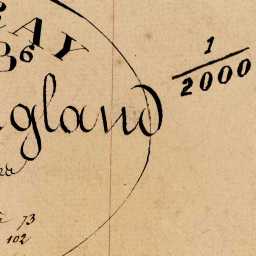 RAY
36
gland
1/2000
73
102